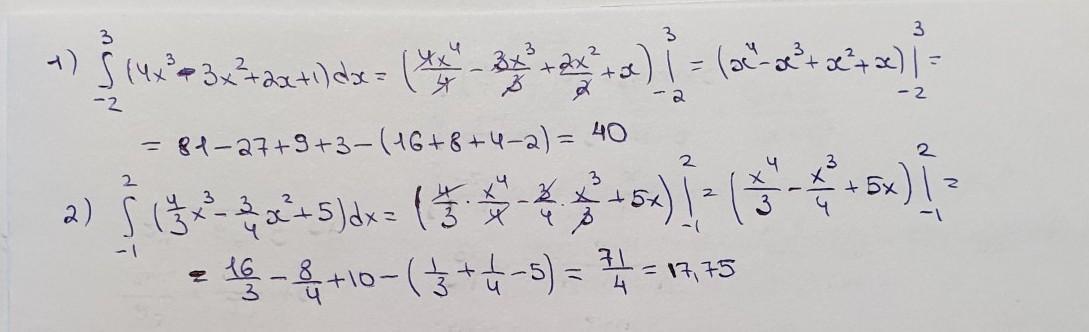 1) ∫₋₂³ (4x³ - 3x² + 2x + 1)dx = (4x⁴/4 - 3x³/3 + 2x²/2 + x) |₋₂³ = (x⁴ - x³ + x² + x) |₋₂³ =
= 81 - 27 + 9 + 3 - (16 + 8 + 4 - 2) = 40
2) ∫₋₁² (4/3 x³ - 3/4 x² + 5)dx = (4/3 · x⁴/4 - 3/4 · x³/3 + 5x) |₋₁² = (x⁴/3 - x³/4 + 5x) |₋₁² =
= 16/3 - 8/4 + 10 - (1/3 + 1/4 - 5) = 71/4 = 17,75